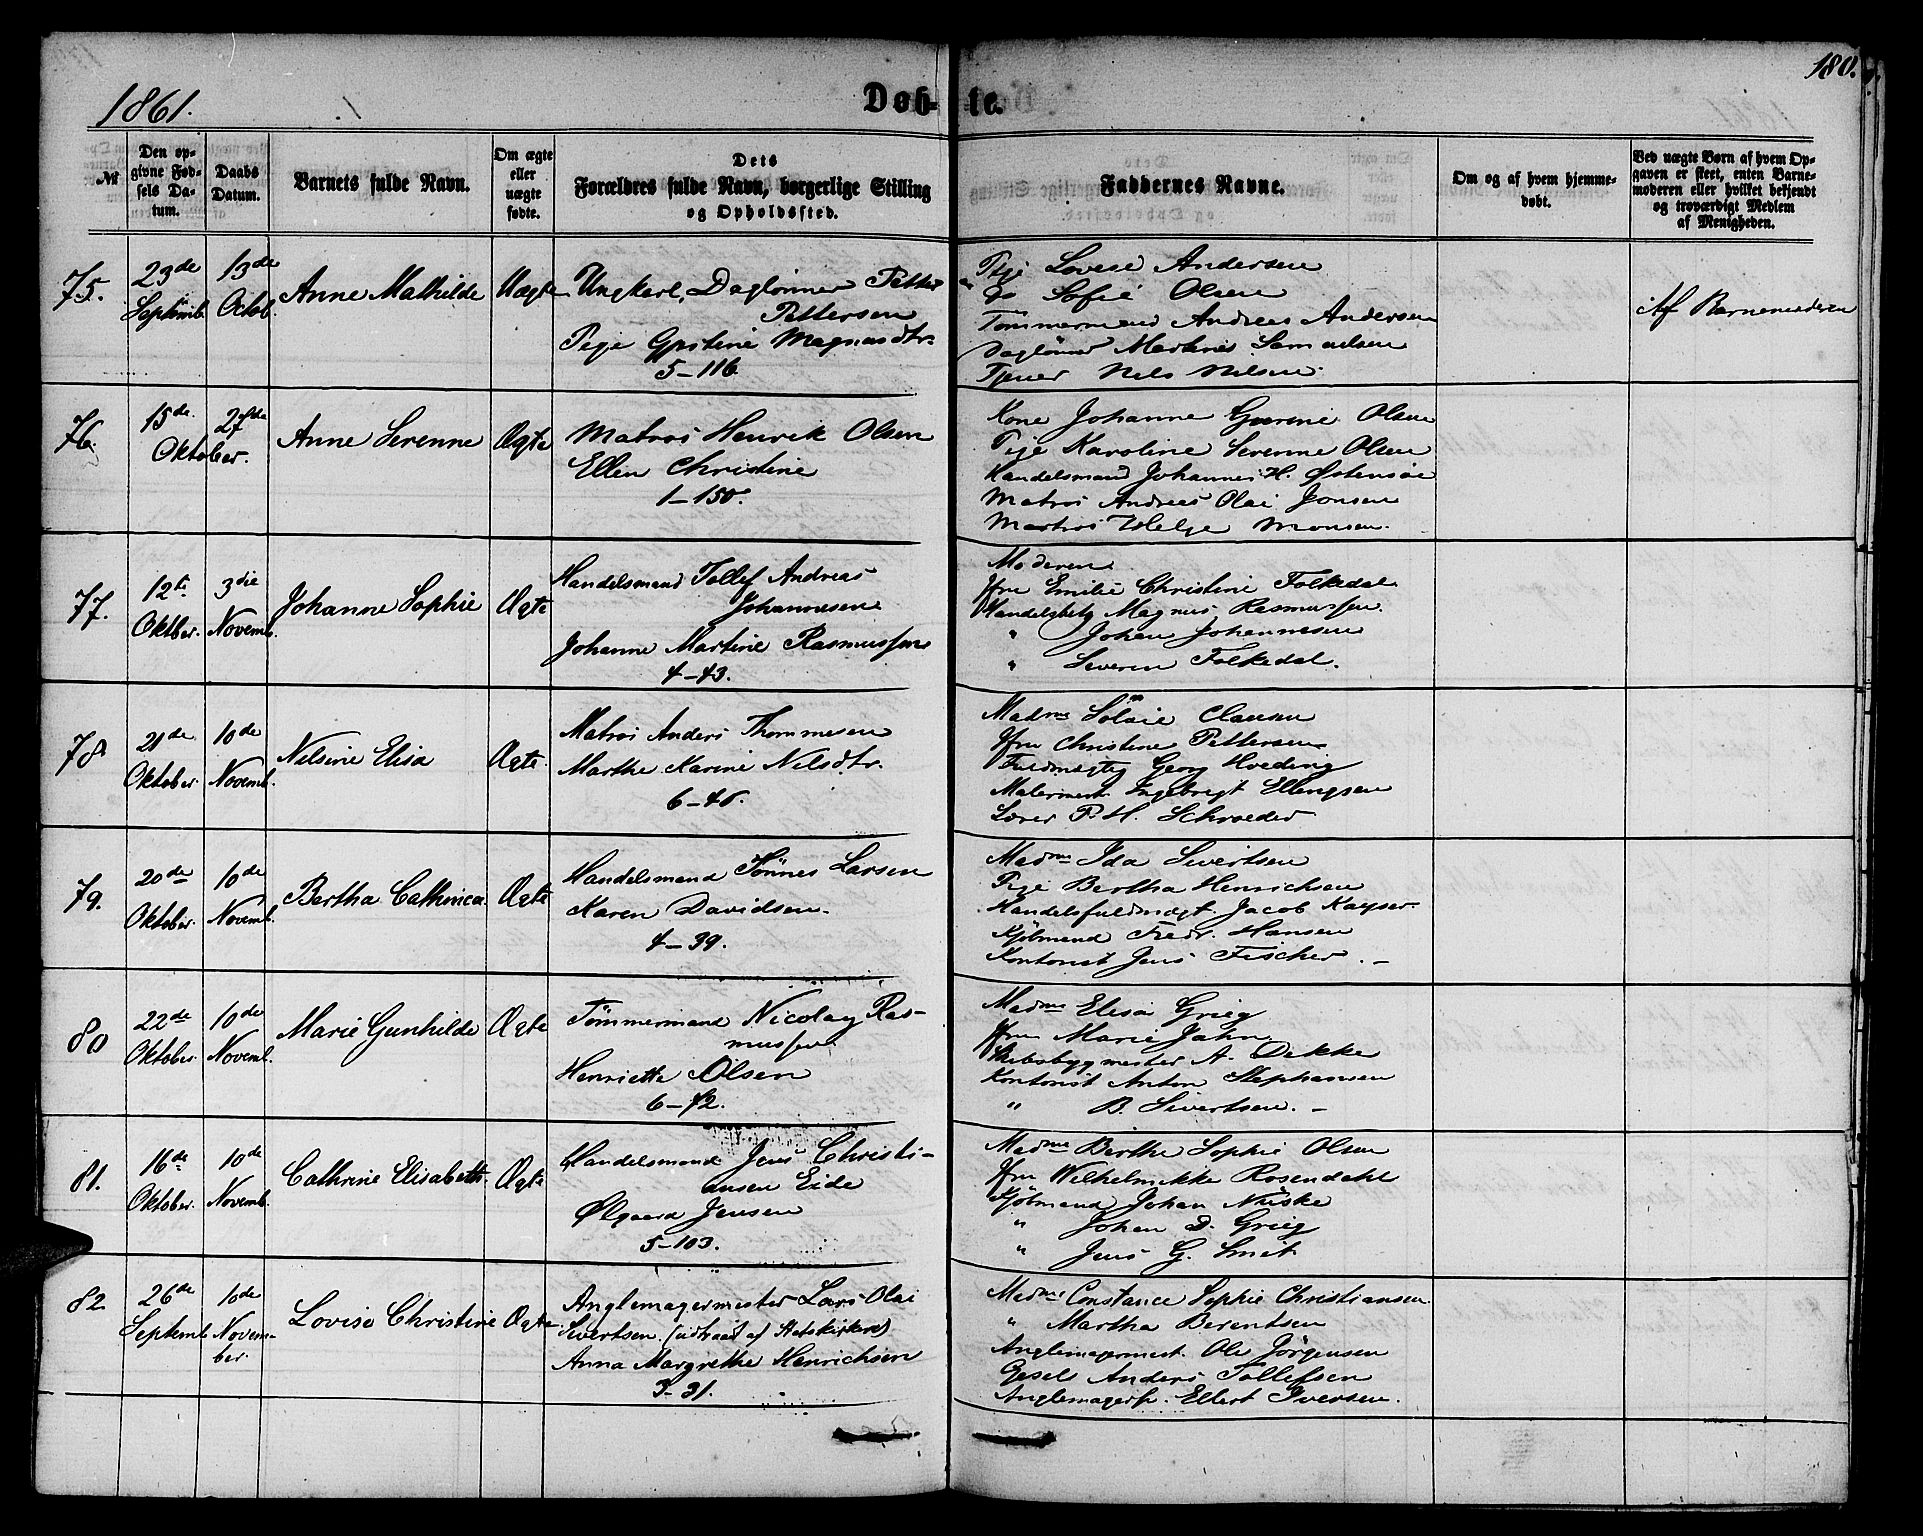 1861.
Døb-te.
180.
№
Den opgivne Fødsels Datum.
Daabs Datum.
Barnets fulde Navn.
Om ægte eller uægte fødte.
Dets Forældres fulde Navn, borgerlige Stilling og Opholdssted.
Faddernes Navne.
Om og af hvem hjemmedøbt.
Ved uægte Børn af hvem Opgaven er skeet, enten Barnemoderen eller hvilket bekjendt og troværdigt Medlem af Menigheden.
75.
23de Septemb.
13de Octob.
Anne Mathilde
Uægte
Ungkarl, Daglønner Petter
Pettersen
Pige Gjertine Magnusdtr.
5-116.
Pige Lovise Andersen
do Sofie Olsen
Tømmermand Andreas Andersen
Daglønner Martines Samuelsen
Tjener Nels Nelsen.
Af Barnemoderen
76.
15de 27de
Oktober.
Anne Serenne
Ægte
Matros Henrik Olsen
Ellen Christine
1-150.
Kone Johanne Gurine Olsen
Pige Karoline Serenne Olsen
Handelsmand Johannes H. Østensøe
Matros Andreas Olai Jonsen
Matros Helge Monsen.
77.
12te Oktber.
3die Novemb.
Johanne Sophie
Ægte
Handelsmand Tollef Andreas
Johannesen
Johanne Martine Rasmussen
4-43.
Moderen
Jfru Emilie Christine Folkedal
Handelsbetj Magnus Rasmussen.
" Johan Johannesen
" Severin Folkedal.
78.
21de Oktober.
10de Novemb.
Nilsine Elisa
Ægte.
Matros Anders Thommesen
Marthe Karine Nelsdtr.
6-46.
Madme Clausen
Jfru Christine Pettersen
Fuldmægtig Georg Hveding
Malermest. Ingebrigt Ellingsen
Lærer P. H. Schroeder
79.
20de Oktober.
10de Novemb.
Bertha Cathinca.
Ægte
Handelsmand Tönnes Larsen
Karen Davidsen.
4-39.
Madme Ida Sivertsen
Pige Bertha Henrichsen
Handelsfuldmægt. Jacob Kayser.
Kjöbmand Fredr. Hansen
Kontorist Jens Fischer. -
80
22de Oktober
10de Novemb.
Marie Gunhilde
Ægte
Tømmermand Nicolay Ras-
mussen
Henriette Olsen
6-72.
Madme Elisa Grieg
Jfru Marie Jahn
Skibsbygmester A. Dekke
Kontorist Anton Stephansen
" B. Sivertsen. -
81.
16de Oktober.
10de Novemb.
Cathrine Elisabeth.
Ægte
Handelsmand Jens Christi-
ansen Eide
Ølgaard Jensen
5-103.
Madme Berthe Sophie Olsen
Jfru Wilhelmikke Rosendahl
Kjöbmand Johan Niuske
" Johan D. Grieg
" Jens G. Smit
82.
26de Septemb.
10de November.
Lovise Christine
Ægte.
Anglemagermester Lars Olai
Sivertsen. (udtraadt af Statskirken)
Anna Margrethe Henrichsen
3-31.
Madme Constance Sophie Christiansen.
" Martha Berentsen
Anglemagermest. Ole Jörgensen
Gesel Anders Tollefsen
Anglemagersv. Ellert Iversen.